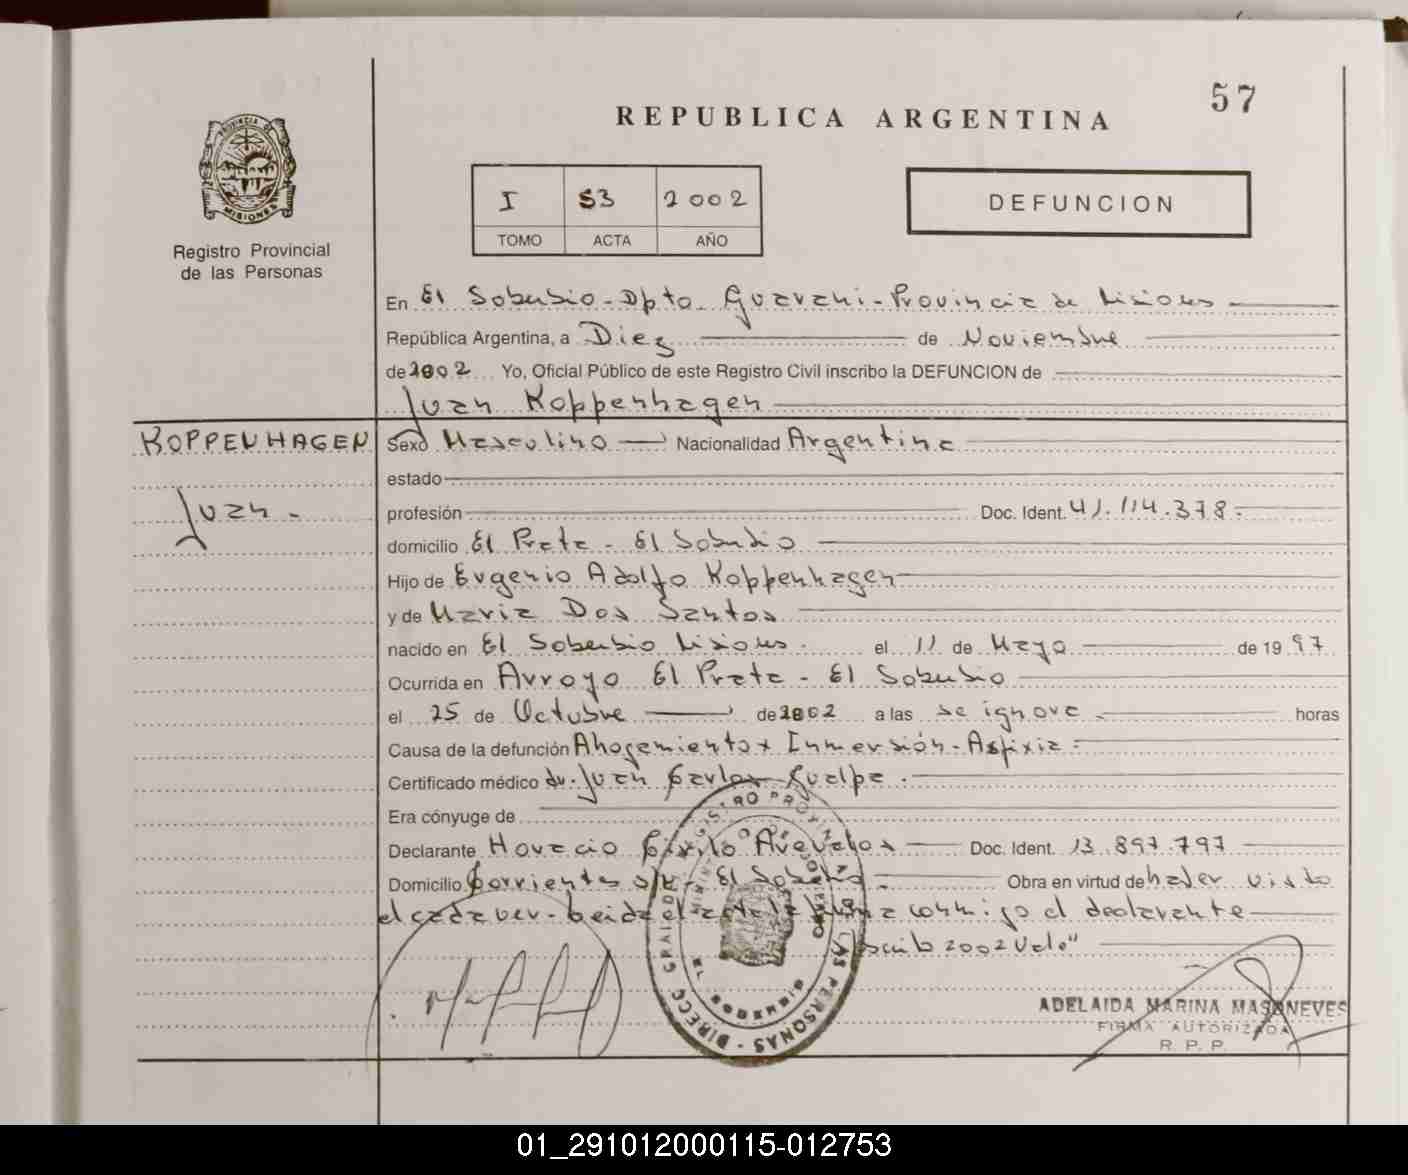 57
REPUBLICA ARGENTINA
PROVINCIA DE
MISIONES
Registro Provincial
de las Personas
I S3 2002
TOMO ACTA AÑO
DEFUNCION
En El Soberbio - Dpto. Guarani - Provincia de Misiones
República Argentina, a Diez de Noviembre
de 2002 Yo, Oficial Público de este Registro Civil inscribo la DEFUNCION de
Juan Koppenhagen
KOPPENHAGEN
Juan -
Sexo Masculino Nacionalidad Argentina
estado
profesión Doc. Ident. 41.114.378.
domicilio El Prata - El Soberbio
Hijo de Eugenio Adolfo Koppenhagen
y de Maria Dos Santos
nacido en El Soberbio Misiones. el 11 de Mayo de 19 97
Ocurrida en Arroyo El Prata - El Soberbio
el 25 de Octubre de 2002 a las se ignora horas
Causa de la defunción Ahogamiento x Inmersión - Asfixia
Certificado médico dr. Juan Carlos Gualpa.
Era cónyuge de
Declarante Horacio Cirilo Avevalos Doc. Ident. 13.897.797
Domicilio Corrientes s/n - El Soberbio. Obra en virtud de haber visto
el cadaver - Leida el acta la firma conmigo el declarante
2002 Vale"
REGISTRO PROVIN
LAS PERSONAS - DIRECC GRAL DE
MINISTERIO DE GOBIERNO
EL SOBERBIO
ADELAIDA MARINA MASONEVES
FIRMA AUTORIZADA
R. P. P.
01_291012000115-012753